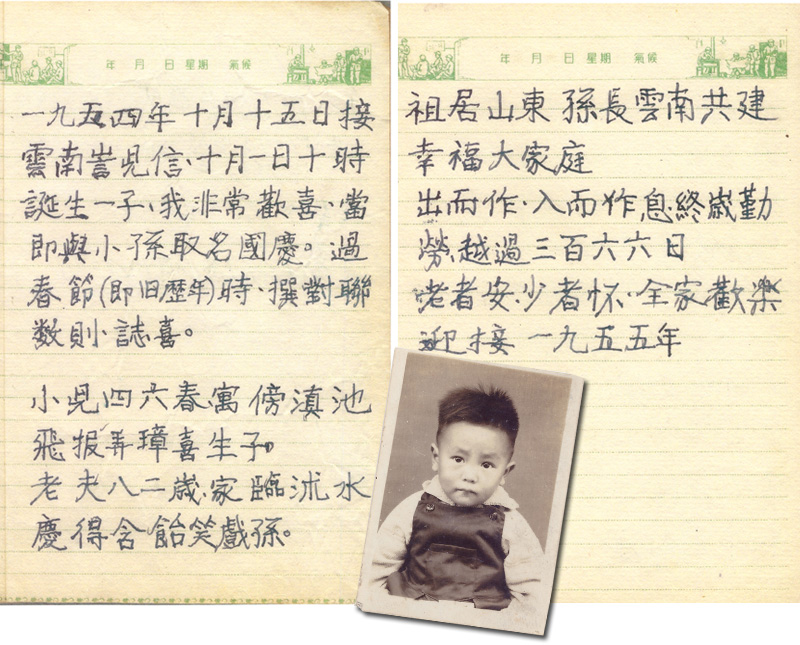 年 月 日 星期 氣候
一九五四年十月十五日接
雲南嵩兒信、十月一日十時
誕生一子、我非常歡喜、當
即與小孫取名國慶。過
春節(即旧歷年)時、撰對聯
数則誌喜。
小兒四六春寓傍滇池
飛报弄璋喜生子。
老夫八二歲、家臨沭水
慶得含飴笑戲孫。
年 月 日 星期 氣候
祖居山東孫長雲南共建
幸福大家庭
出而作、入而作息終歲勤
勞、越過三百六六日
老者安、少者怀、全家歡樂
迎接一九五五年